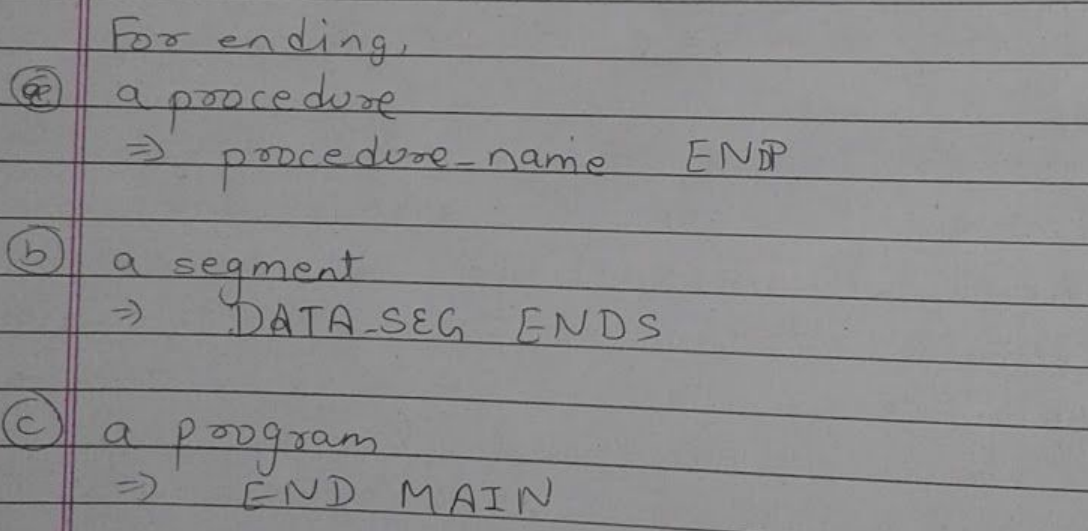 For ending,
ⓐ a procedure
⇒ procedure_name ENDP
ⓑ a segment
⇒ DATA_SEG ENDS
ⓒ a program
⇒ END MAIN